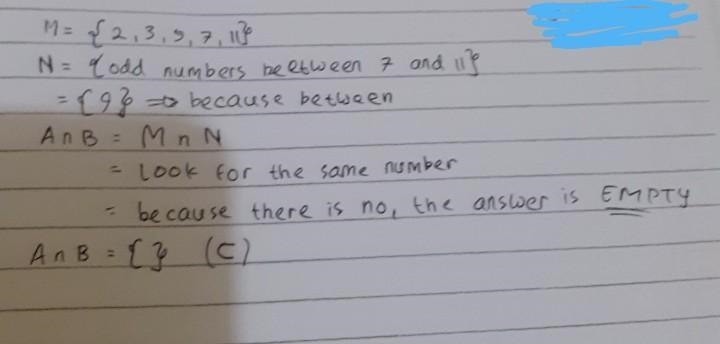 M = {2, 3, 5, 7, 11}
N = {odd numbers beetween 7 and 11}
= {9} => because between
A n B = M n N
= Look for the same number
= because there is no, the answer is EMPTY
A n B = { } (C)